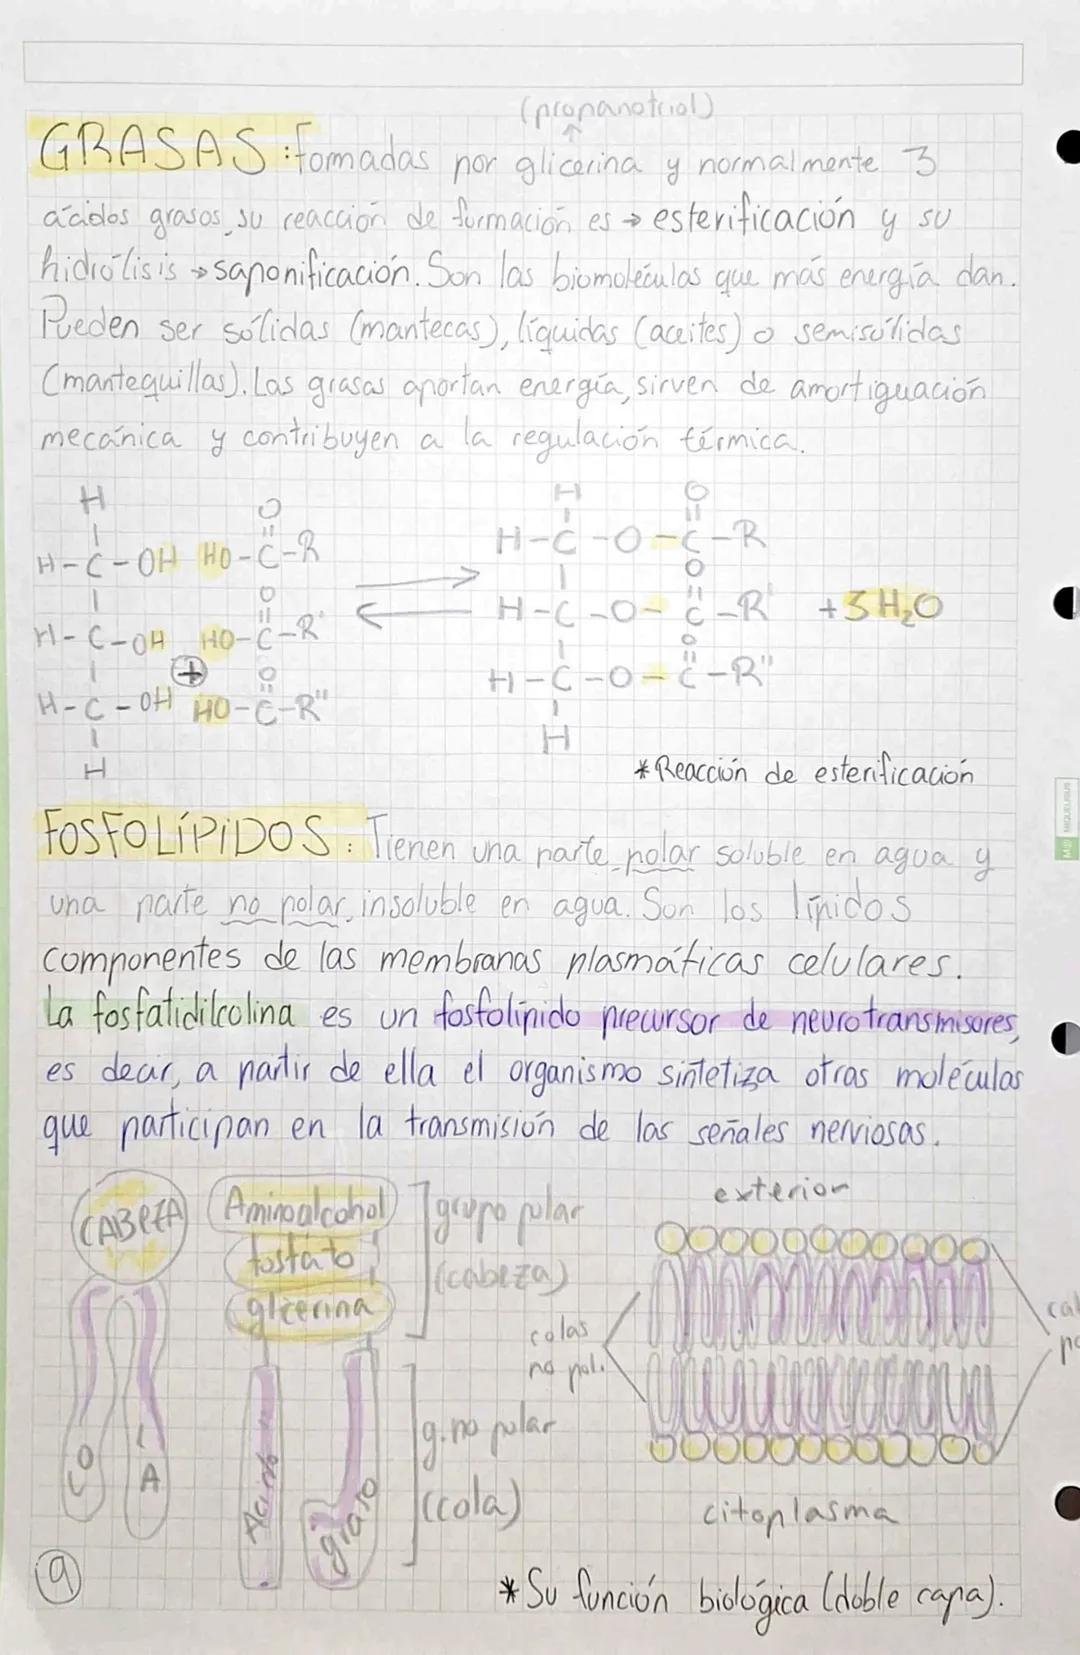 (propanotriol)
GRASAS: formadas por glicerina y normalmente 3
ácidos grasos, su reacción de formación es → esterificación y su
hidrólisis → saponificación. Son las biomoléculas que más energía dan.
Pueden ser sólidas (mantecas), líquidas (aceites) o semisólidas
(mantequillas). Las grasas aportan energía, sirven de amortiguación
mecánica y contribuyen a la regulación térmica.
H
H-C-OH HO-C-R
O
H-C-OH HO-C-R'
O
+
H-C-OH HO-C-R"
O
H
H
O
H-C-O-C-R
O
H-C-O-C-R'
+3 H₂O
O
H-C-O-C-R"
H
* Reacción de esterificación
FOSFOLÍPIDOS: Tienen una parte polar soluble en agua y
una parte no polar, insoluble en agua. Son los lípidos
componentes de las membranas plasmáticas celulares.
La fosfatidilcolina es un fosfolípido precursor de neurotransmisores,
es decir, a partir de ella el organismo sintetiza otras moléculas
que participan en la transmisión de las señales nerviosas.
CABEZA
COLA
Aminoalcohol
fosfato
glicerina
grupo polar
(cabeza)
Ácido
graso
g. no polar
(cola)
exterior
colas
no pol.
citoplasma
9
* Su función biológica (doble capa).
MIQUELRIUS